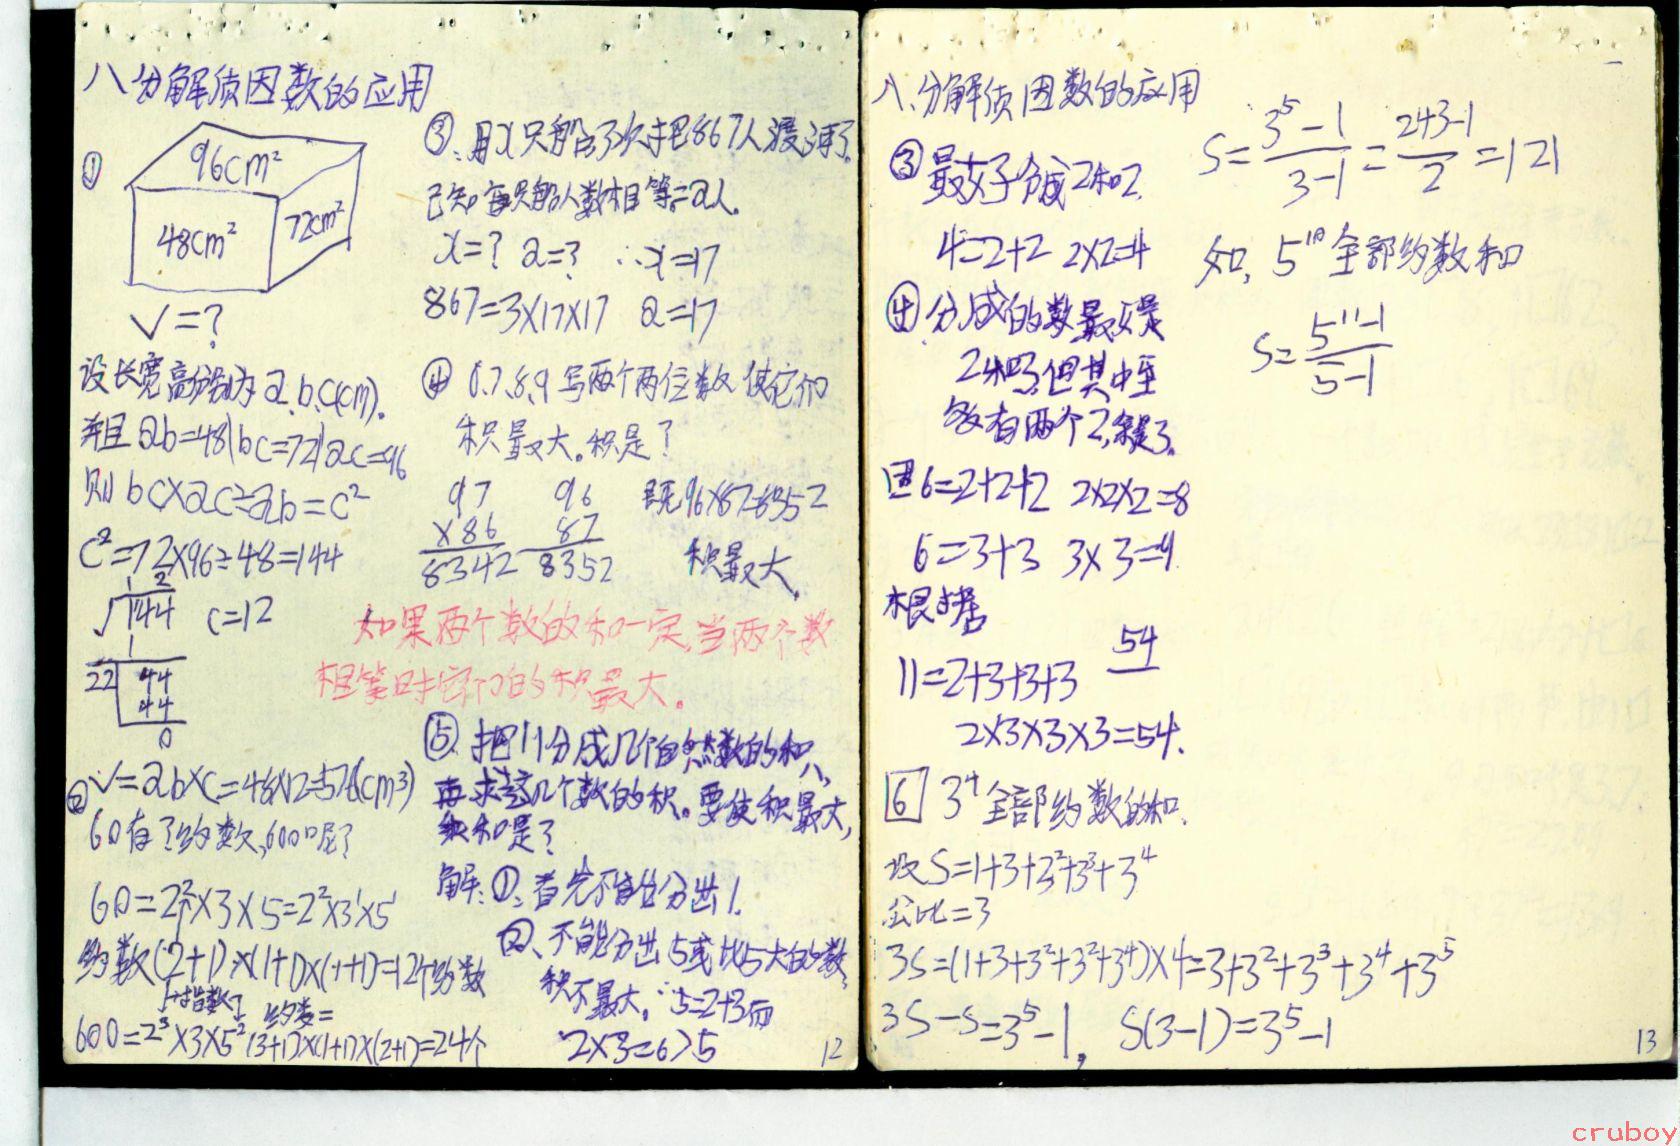 八分解质因数的应用
①
96cm²
48cm²
72cm²
V=?
设长宽高分别为a.b.c(cm).
并且ab=48 bc=72 ac=96
则bc×ac÷ab=c²
c²=72×96÷48=144
12
√144 c=12
1
22 44
44
0
V=ab×c=48×12=576(cm³)
②
60有?约数,600呢?
60=2²×3×5=2²×3¹×5¹
约数(2+1)×(1+1)×(1+1)=12个约数
指数 约数=
600=2³×3×5² (3+1)×(1+1)×(2+1)=24个
③.用x只船3次把867人渡
已知每只船人数相等=a人.
x=? a=? ∴x=17
867=3×17×17 a=17
④ 6.7.8.9写两个两位数 使它们
积最大。积是?
97 96 既96×87=8352
×86 87
8342 8352 积最大.
如果两个数的和一定,当两个数
相等时它们的积最大。
⑤.把11分成几个自然数的和,
再求这几个数的积。要使积最大,
和是?
解:①.首先不能分出1.
②、不能分出5或比5大的数,
积不最大。∵5=2+3而
2×3=6>5
12
八、分解质因数的应用
③最好分成2和2.
4=2+2 2×2=4
④分成的数最好是
2和3,但其中至
多有两个2,
6=2+2+2 2×2×2=8
6=3+3 3×3=9
根据
54
11=2+3+3+3
2×3×3×3=54.
6 3⁴全部约数的和.
设S=1+3+3²+3³+3⁴
公比=3
3S=(1+3+3²+3²+3⁴)×4=3+3²+3³+3⁴+3⁵
3S-S=3⁵-1, S(3-1)=3⁵-1
S=3⁵-1/3-1=243-1/2=121
如,5¹⁰全部约数和
S=5¹¹-1/5-1
13
cruboy